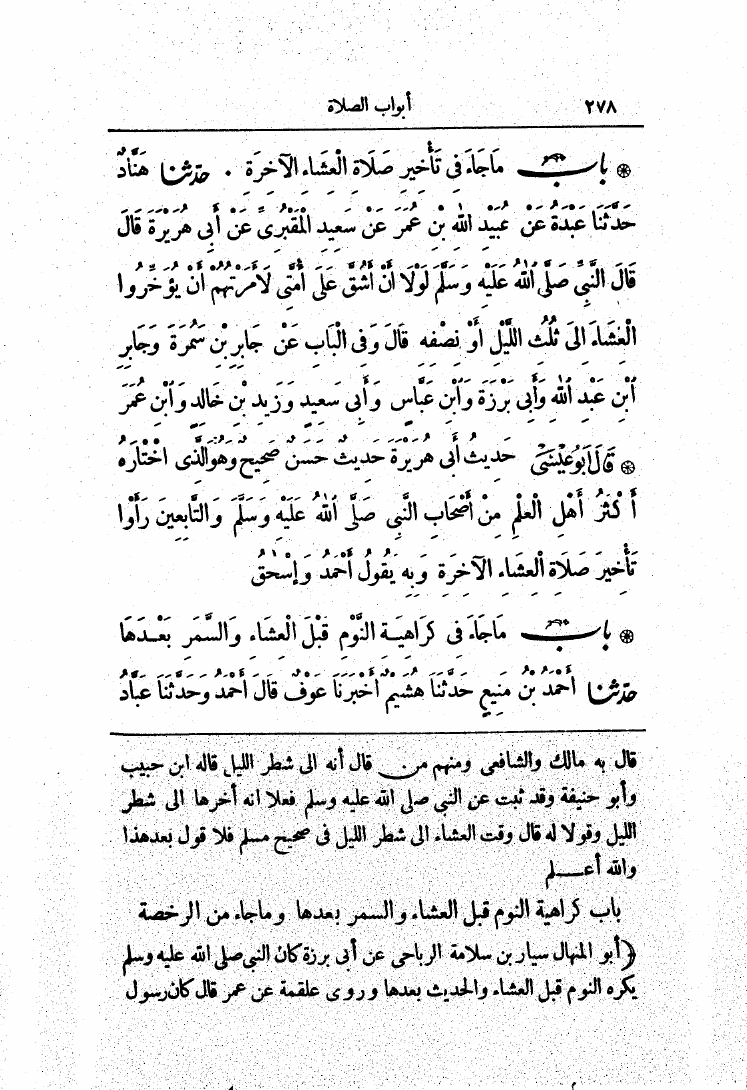 ٢٧٨ أبواب الصلاة
❋ باب مَاجَاءَ فِي تَأْخِيرِ صَلَاةِ الْعِشَاءِ الْآخِرَةِ . حَدَّثَنَا هَنَّادٌ
حَدَّثَنَا عَبْدَةُ عَنْ عُبَيْدِ اللَّهِ بْنِ عُمَرَ عَنْ سَعِيدٍ الْمَقْبُرِيِّ عَنْ أَبِي هُرَيْرَةَ قَالَ
قَالَ النَّبِيُّ صَلَّى اللَّهُ عَلَيْهِ وَسَلَّمَ لَوْلَا أَنْ أَشُقَّ عَلَى أُمَّتِي لَأَمَرْتُهُمْ أَنْ يُؤَخِّرُوا
الْعِشَاءَ إِلَى ثُلُثِ اللَّيْلِ أَوْ نِصْفِهِ قَالَ وَفِي الْبَابِ عَنْ جَابِرِ بْنِ سَمُرَةَ وَجَابِرِ
ابْنِ عَبْدِ اللَّهِ وَأَبِي بَرْزَةَ وَابْنِ عَبَّاسٍ وَأَبِي سَعِيدٍ وَزَيْدِ بْنِ خَالِدٍ وَابْنِ عُمَرَ
❋ قَالَ أَبُو عِيسَى حَدِيثُ أَبِي هُرَيْرَةَ حَدِيثٌ حَسَنٌ صَحِيحٌ وَهُوَ الَّذِي اخْتَارَهُ
أَكْثَرُ أَهْلِ الْعِلْمِ مِنْ أَصْحَابِ النَّبِيِّ صَلَّى اللَّهُ عَلَيْهِ وَسَلَّمَ وَالتَّابِعِينَ رَأَوْا
تَأْخِيرَ صَلَاةِ الْعِشَاءِ الْآخِرَةِ وَبِهِ يَقُولُ أَحْمَدُ وَإِسْحَقُ
❋ باب مَاجَاءَ فِي كَرَاهِيَةِ النَّوْمِ قَبْلَ الْعِشَاءِ وَالسَّمَرِ بَعْدَهَا
حَدَّثَنَا أَحْمَدُ بْنُ مَنِيعٍ حَدَّثَنَا هُشَيْمٌ أَخْبَرَنَا عَوْفٌ قَالَ أَحْمَدُ وَحَدَّثَنَا عَبَّادُ
قال به مالك والشافعى ومنهم من قال أنه الى شطر الليل قاله ابن حبيب
وأبو حنيفة وقد ثبت عن النبى صلى الله عليه وسلم فعلا انه أخرها الى شطر
الليل وقولا له قال وقت العشاء الى شطر الليل فى صحيح مسلم فلا قول بعدهذا
والله أعـــلم
باب كراهية النوم قبل العشاء والسمر بعدها وماجاء من الرخصة
﴿أبو المنهال سيار بن سلامة الرباحى عن أبى برزة كان النبى صلى الله عليه وسلم
يكره النوم قبل العشاء والحديث بعدها وروى علقمة عن عمر قال كان رسول